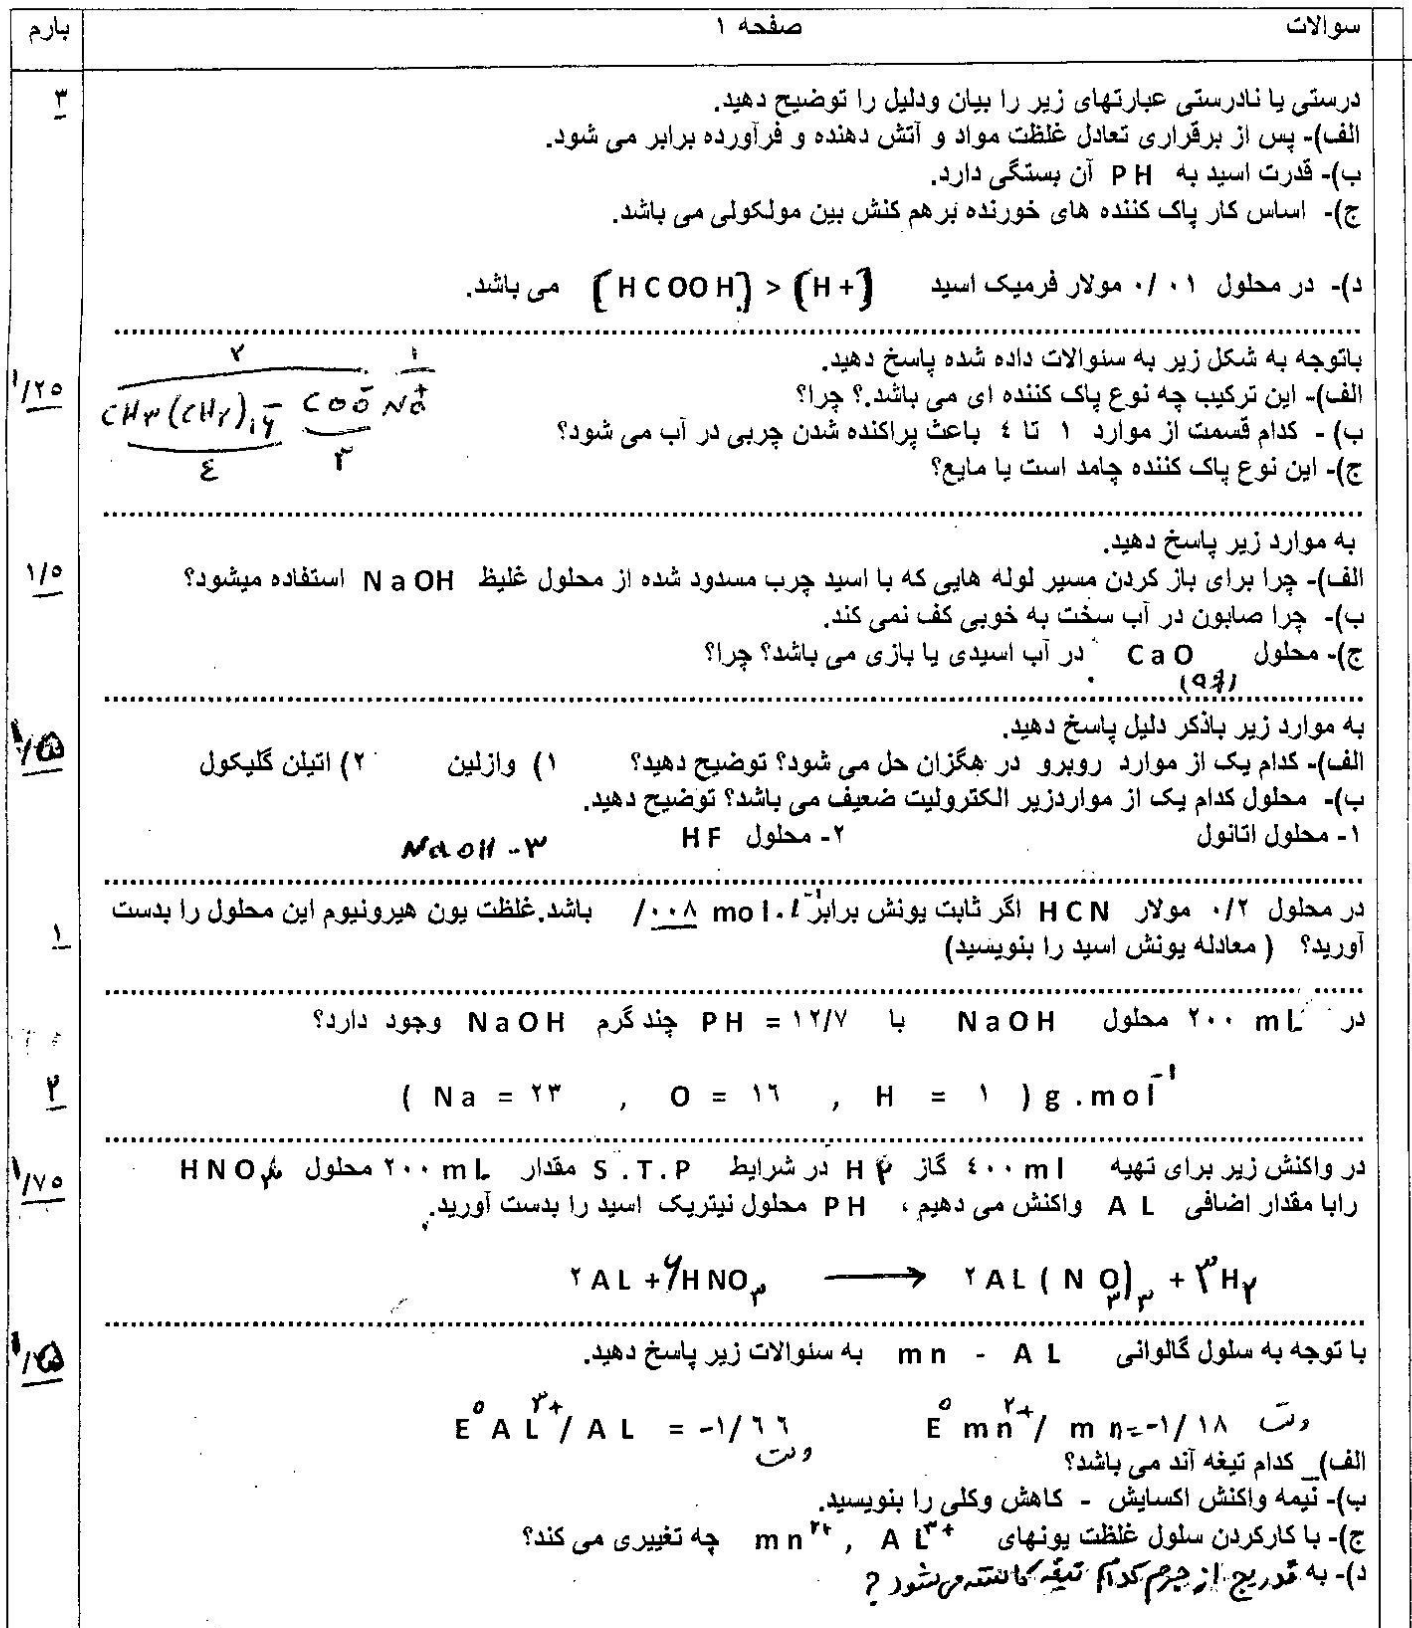 سوالات صفحه ۱ بارم
درستی یا نادرستی عبارتهای زیر را بیان ودلیل را توضیح دهید. ۳
الف)- پس از برقراری تعادل غلظت مواد و آتش دهنده و فرآورده برابر می شود.
ب)- قدرت اسید به PH آن بستگی دارد.
ج)- اساس کار پاک کننده های خورنده برهم کنش بین مولکولی می باشد.
د)- در محلول ۰/۰۱ مولار فرمیک اسید [HCOOH] < [H+] می باشد.
باتوجه به شکل زیر به سئوالات داده شده پاسخ دهید. ۱/۲۵
الف)- این ترکیب چه نوع پاک کننده ای می باشد.؟ چرا؟
ب) - کدام قسمت از موارد ۱ تا ٤ باعث پراکنده شدن چربی در آب می شود؟
ج)- این نوع پاک کننده جامد است یا مایع؟
۲ ۱
CH۳(CH۲)۱۶ - COO⁻ Na⁺
٤ ۳
به موارد زیر پاسخ دهید. ۱/۵
الف)- چرا برای باز کردن مسیر لوله هایی که با اسید چرب مسدود شده از محلول غلیظ NaOH استفاده میشود؟
ب)- چرا صابون در آب سخت به خوبی کف نمی کند.
ج)- محلول CaO در آب اسیدی یا بازی می باشد؟ چرا؟
به موارد زیر باذکر دلیل پاسخ دهید. ۱/۵
الف)- کدام یک از موارد روبرو در هگزان حل می شود؟ توضیح دهید؟ ۱) وازلین ۲) اتیلن گلیکول
ب)- محلول کدام یک از مواردزیر الکترولیت ضعیف می باشد؟ توضیح دهید.
۱- محلول اتانول ۲- محلول HF ۳- NaOH
در محلول ۰/۲ مولار HCN اگر ثابت یونش برابر mol.l⁻¹ /۰۰۸ باشد.غلظت یون هیرونیوم این محلول را بدست ۱
آورید؟ ( معادله یونش اسید را بنویسید)
در ۲۰۰ mL محلول NaOH با PH = ۱۲/۷ چند گرم NaOH وجود دارد؟
( Na = ۲۳ , O = ۱٦ , H = ۱ ) g.mol⁻¹ ۲
در واکنش زیر برای تهیه ٤۰۰ml گاز H۲ در شرایط S.T.P مقدار ۲۰۰ mL محلول HNO۳ ۱/۷۵
رابا مقدار اضافی AL واکنش می دهیم ، PH محلول نیتریک اسید را بدست آورید.
۲AL + ۶HNO۳ ⟶ ۲AL(NO۳)۳ + ۳H۲
با توجه به سلول گالوانی mn - AL به سئوالات زیر پاسخ دهید. ۱/۵
E⁰ AL³⁺/AL = -۱/٦٦ ولت E⁰ mn²⁺/mn = -۱/۱۸ ولت
الف)_ کدام تیغه آند می باشد؟
ب)- نیمه واکنش اکسایش - کاهش وکلی را بنویسید.
ج)- با کارکردن سلول غلظت یونهای mn²⁺ , AL³⁺ چه تغییری می کند؟
د)- به تدریج از جرم کدام تیغه کاسته می شود ؟